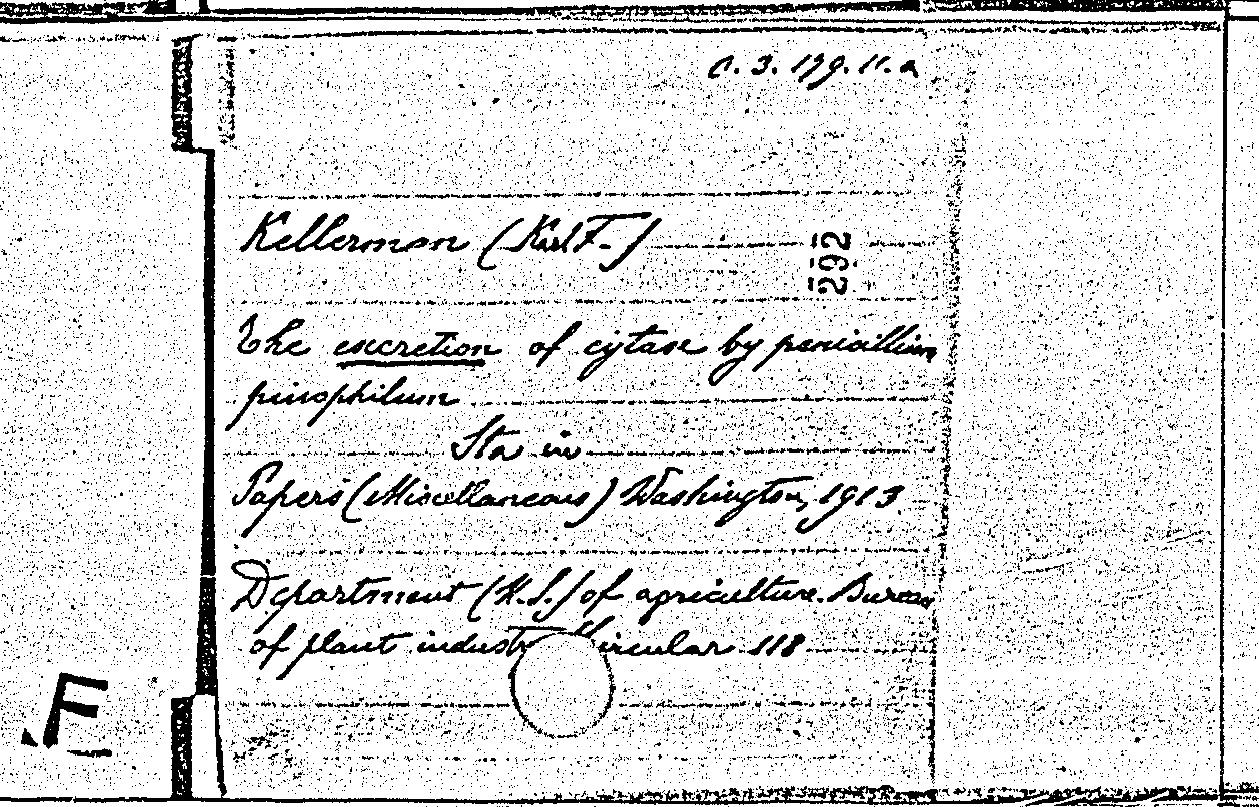 C. 3. 179. 11. a
Kellerman (Karl F.)
292
The excretion of cytase by penicillium
pinophilum
in
Papers (Miscellaneous) Washington, 1913.
Department (U.S.) of agriculture. Bureau
of plant industry Circular 118
E